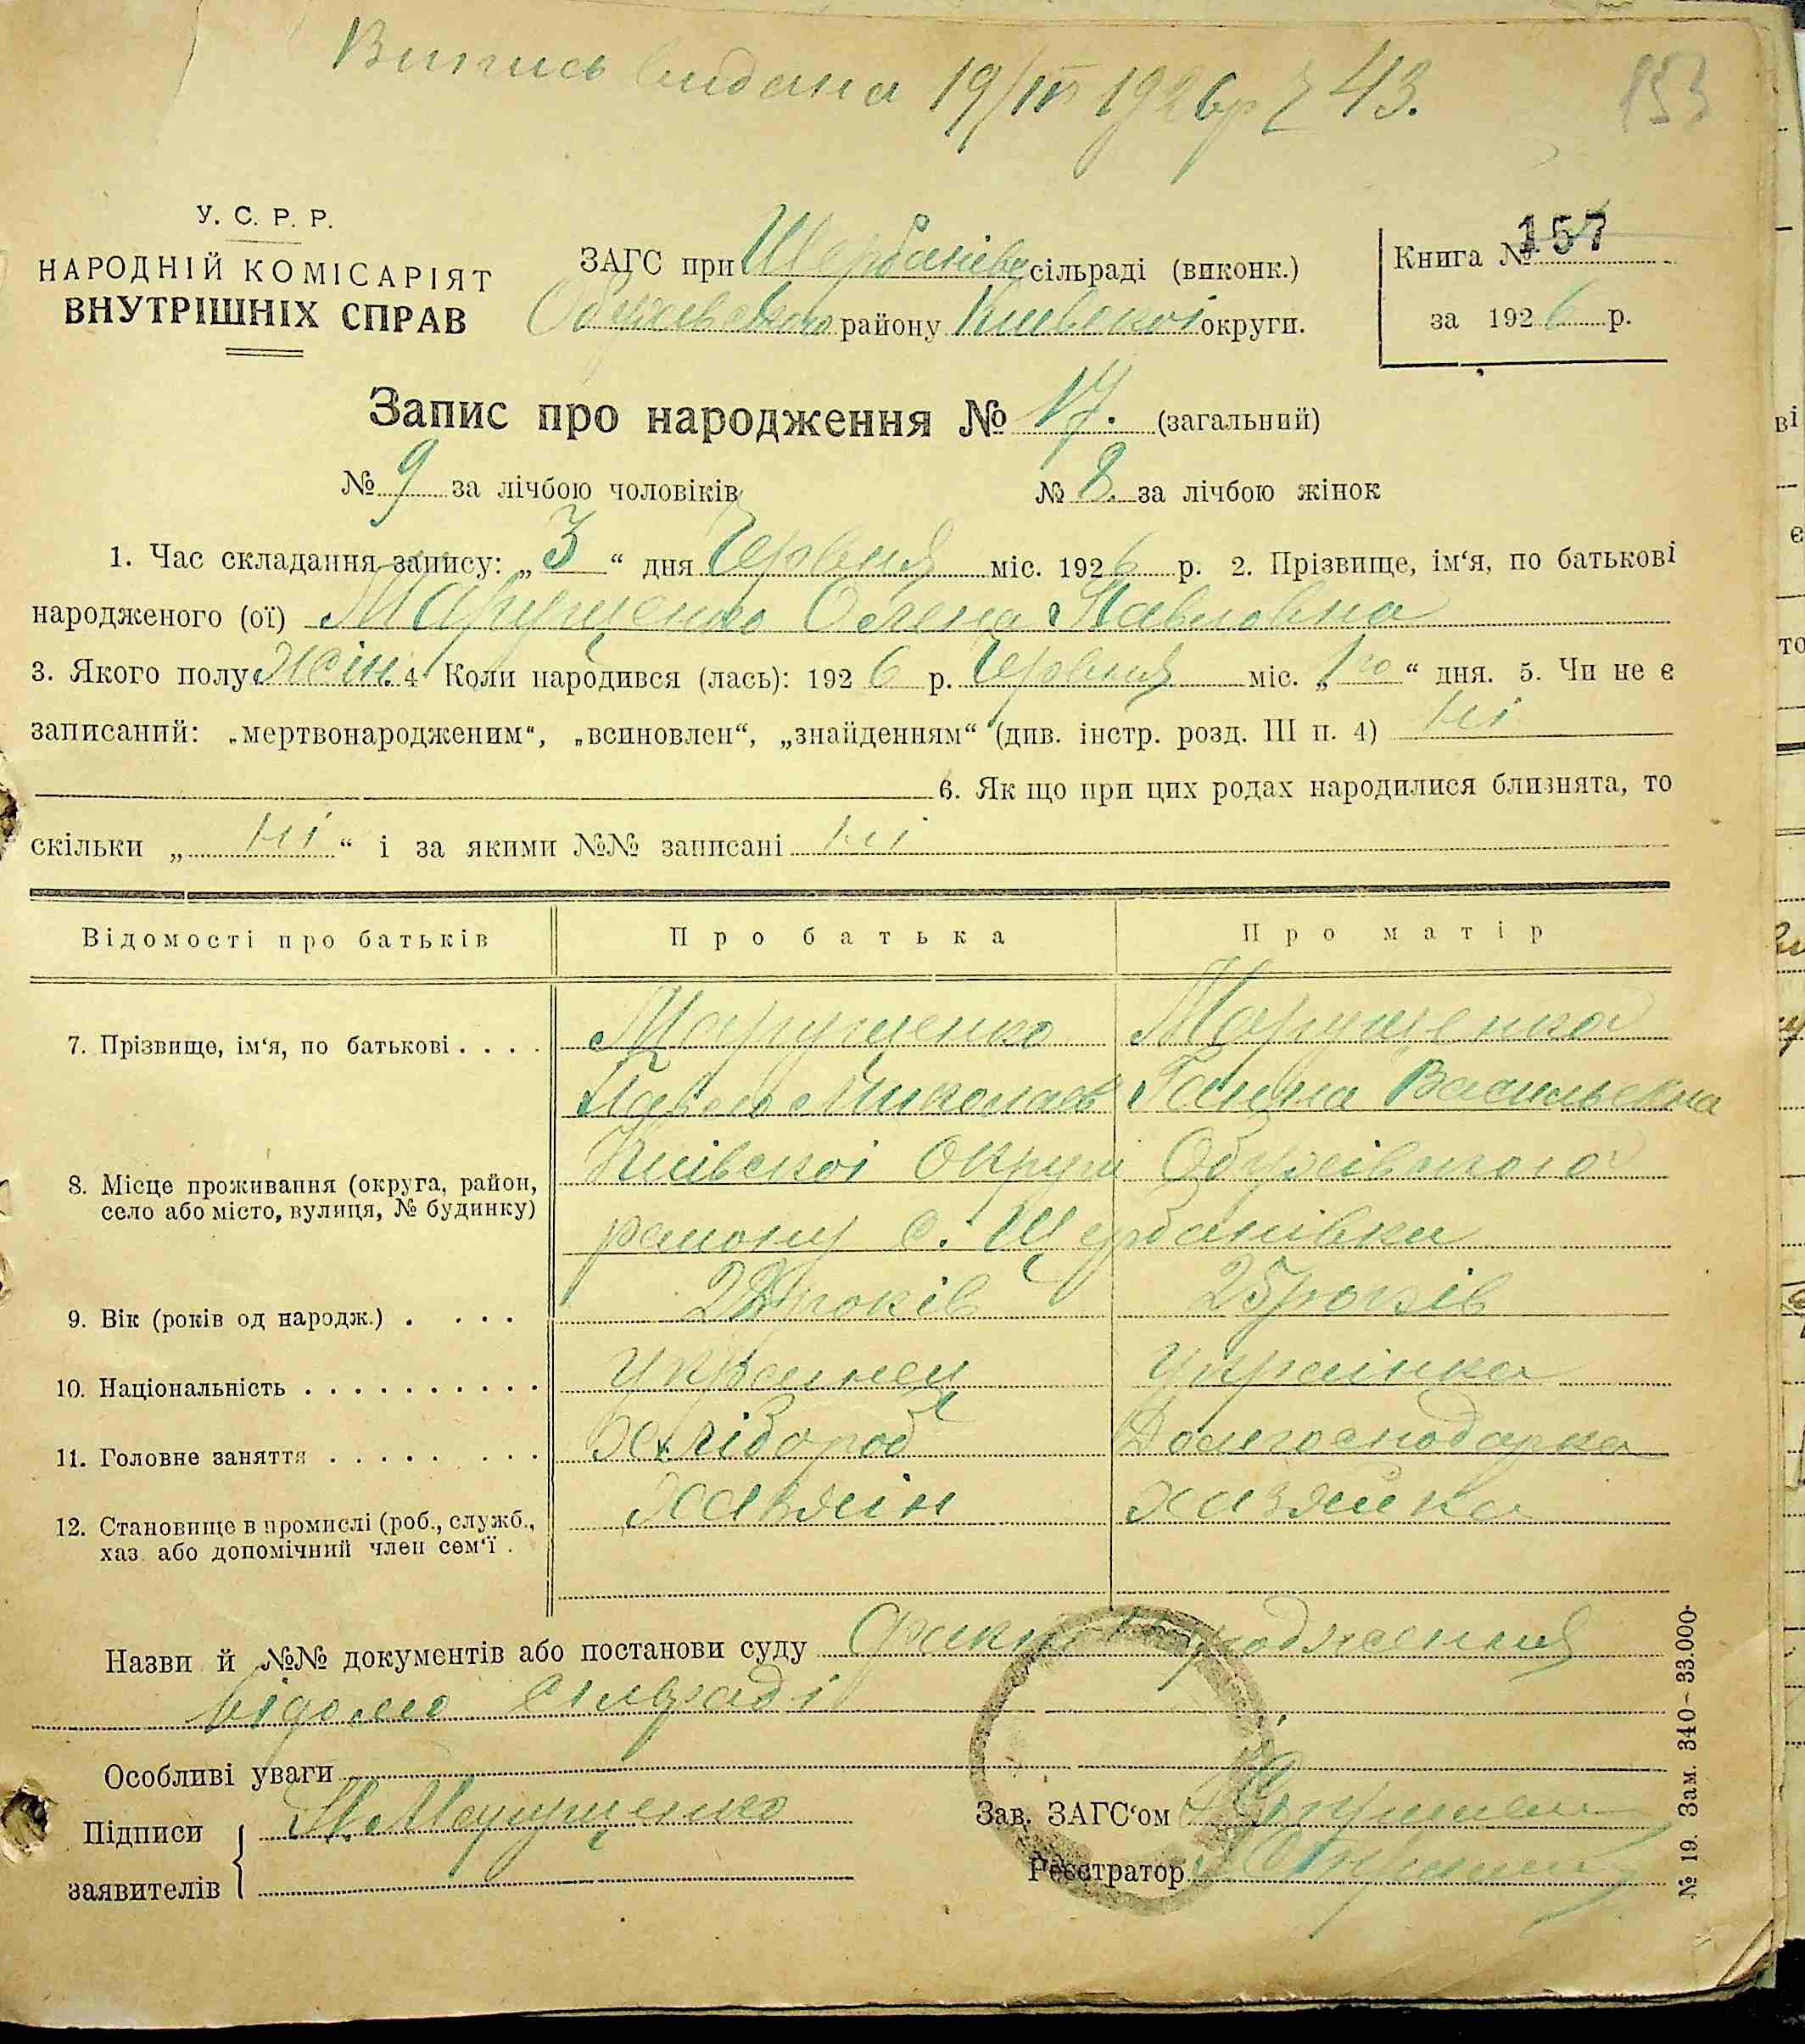 Випись видана 19/IV 1926 р № 43.
153
У. С. Р. Р.
НАРОДНІЙ КОМІСАРІЯТ
ВНУТРІШНІХ СПРАВ
ЗАГС при Щербанівс сільраді (виконк.)
Обухівського району Київскоі округи.
Книга № 157
за 1926 р.
Запис про народження № 17. (загальний)
№ 9 за лічбою чоловіків
№ 8. за лічбою жінок
1. Час складання запису: „3“ дня Червня міс. 1926 р. 2. Прізвище, ім‘я, по батькові
народженого (ої) Марущенко Олена Павловна
3. Якого полу жін. 4 Коли народився (лась): 1926 р. Червня міс. „1го“ дня. 5. Чи не є
записаний: „мертвонародженим“, „всиновлен“, „знайденням“ (див. інстр. розд. III п. 4) ні
6. Як що при цих родах народилися близнята, то
скільки „ні“ і за якими №№ записані ні
Відомості про батьків Про батька Про матір
7. Прізвище, ім‘я, по батькові . . . . Марущенко Марущенко
Павло Миколаєв Ганна Васильевна
8. Місце проживання (округа, район, Київскоі Округи Обухівського
село або місто, вулиця, № будинку) району с. Щербанівка
9. Вік (років од народж.) . . . . років 25 років
10. Національність . . . . . . . . . . . Украинец Украінка
11. Головне заняття . . . . . . . . Хлібороб Домгосподарка
12. Становище в промислі (роб., служб., хазяін хазяйка
хаз. або допомічний член сем‘ї .
Назви й №№ документів або постанови суду Факт народження
відомо сілраді
Особливі уваги
Підписи П. Марущенко
заявителів
Зав. ЗАГС‘ом
Реєстратор
№ 19. Зам. 340-33.000.